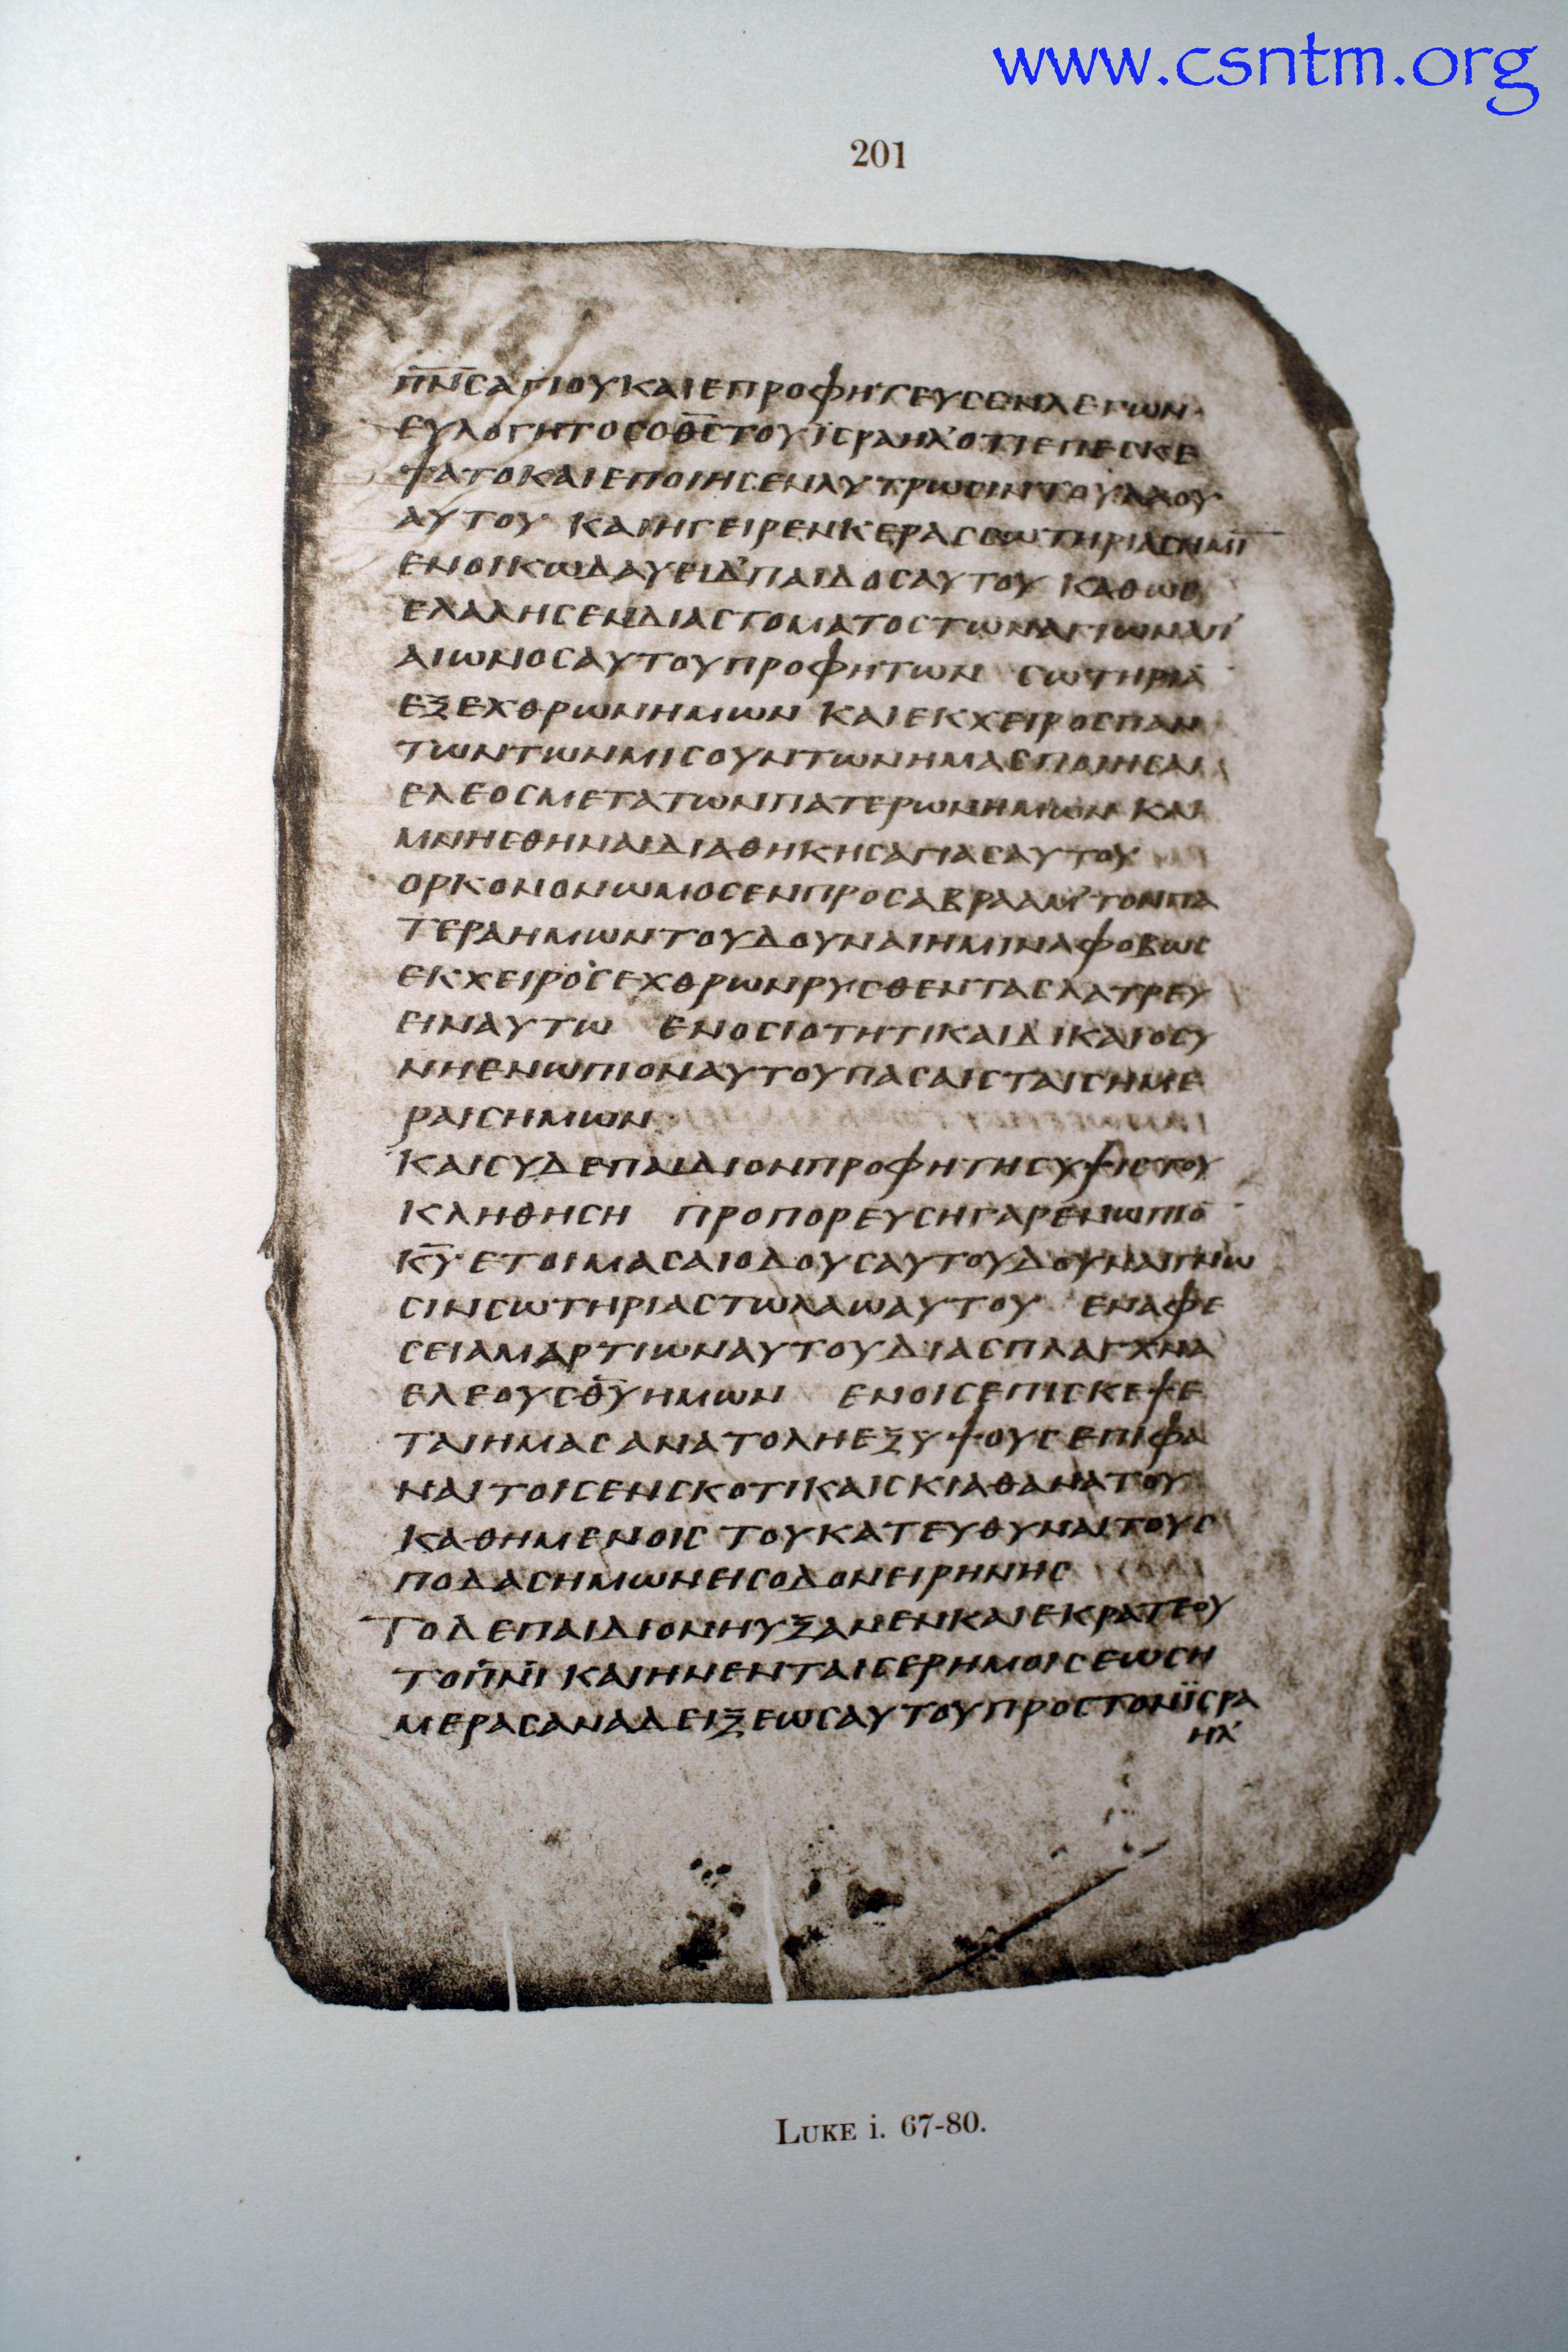 www.csntm.org
201
Π̅Ν̅Σ̅ΑΓΙΟΥΚΑΙΕΠΡΟΦΗΤΕΥΣΕΝΛΕΓΩΝ
ΕΥΛΟΓΗΤΟΣΟΘ̅Σ̅ΤΟΥΪΣΡΑΗΛ’ΟΤΙΕΠΕΣΚΕ
ΨΑΤΟΚΑΙΕΠΟΙΗΣΕΝΛΥΤΡΩΣΙΝΤΟΥΛΑΟΥ
ΑΥΤΟΥ ΚΑΙΗΓΕΙΡΕΝΚΕΡΑΣΣΩΤΗΡΙΑΣΗΜΙ̅
ΕΝΟΙΚΩΔΑΥΕΙΔ’ΠΑΙΔΟΣΑΥΤΟΥ ΚΑΘΩΣ
ΕΛΑΛΗΣΕΝΔΙΑΣΤΟΜΑΤΟΣΤΩΝΑΓΙΩΝΑΠ’
ΑΙΩΝΟΣΑΥΤΟΥΠΡΟΦΗΤΩΝ ΣΩΤΗΡΙΑ̅
ΕΞΕΧΘΡΩΝΗΜΩΝ ΚΑΙΕΚΧΕΙΡΟΣΠΑΝ
ΤΩΝΤΩΝΜΙΣΟΥΝΤΩΝΗΜΑΣΠΟΙΗΣΑΙ
ΕΛΕΟΣΜΕΤΑΤΩΝΠΑΤΕΡΩΝΗΜΩΝ ΚΑΙ
ΜΝΗΣΘΗΝΑΙΔΙΑΘΗΚΗΣΑΓΙΑΣΑΥΤΟΥ
ΟΡΚΟΝΟΝΩΜΟΣΕΝΠΡΟΣΑΒΡΑΑΜ’ΤΟΝΠΑ
ΤΕΡΑΗΜΩΝΤΟΥΔΟΥΝΑΙΗΜΙΝΑΦΟΒΩΣ
ΕΚΧΕΙΡΟΣΕΧΘΡΩΝΡΥΣΘΕΝΤΑΣΛΑΤΡΕΥ
ΕΙΝΑΥΤΩ ΕΝΟΣΙΟΤΗΤΙΚΑΙΔΙΚΑΙΟΣΥ
ΝΗΕΝΩΠΙΟΝΑΥΤΟΥΠΑΣΑΙΣΤΑΙΣΗΜΕ
ΡΑΙΣΗΜΩΝ·
ΚΑΙΣΥΔΕΠΑΙΔΙΟΝΠΡΟΦΗΤΗΣΥΨΙΣΤΟΥ
ΚΛΗΘΗΣΗ ΠΡΟΠΟΡΕΥΣΗΓΑΡΕΝΩΠΙΟ̅
Κ̅Υ̅·ΕΤΟΙΜΑΣΑΙΟΔΟΥΣΑΥΤΟΥΔΟΥΝΑΙΓΝΩ
ΣΙΝΣΩΤΗΡΙΑΣΤΩΛΑΩΑΥΤΟΥ ΕΝΑΦΕ
ΣΕΙΑΜΑΡΤΙΩΝΑΥΤΟΥΔΙΑΣΠΛΑΓΧΝΑ
ΕΛΕΟΥΣΘ̅Υ̅ΗΜΩΝ ΕΝΟΙΣΕΠΙΣΚΕΨΕ
ΤΑΙΗΜΑΣΑΝΑΤΟΛΗΕΞΥΨΟΥΣΕΠΙΦΑ
ΝΑΙΤΟΙΣΕΝΣΚΟΤΙΚΑΙΣΚΙΑΘΑΝΑΤΟΥ
ΚΑΘΗΜΕΝΟΙΣ ΤΟΥΚΑΤΕΥΘΥΝΑΙΤΟΥΣ
ΠΟΔΑΣΗΜΩΝΕΙΣΟΔΟΝΕΙΡΗΝΗΣ
ΤΟΔΕΠΑΙΔΙΟΝΗΥΞΑΝΕΝΚΑΙΕΚΡΑΤΕΟΥ
ΤΟΠ̅Ν̅Ι̅ΚΑΙΗΝΕΝΤΑΙΣΕΡΗΜΟΙΣΕΩΣΗ
ΜΕΡΑΣΑΝΑΔΕΙΞΕΩΣΑΥΤΟΥΠΡΟΣΤΟΝΪΣΡΑ
ΗΛ’
LUKE i. 67-80.